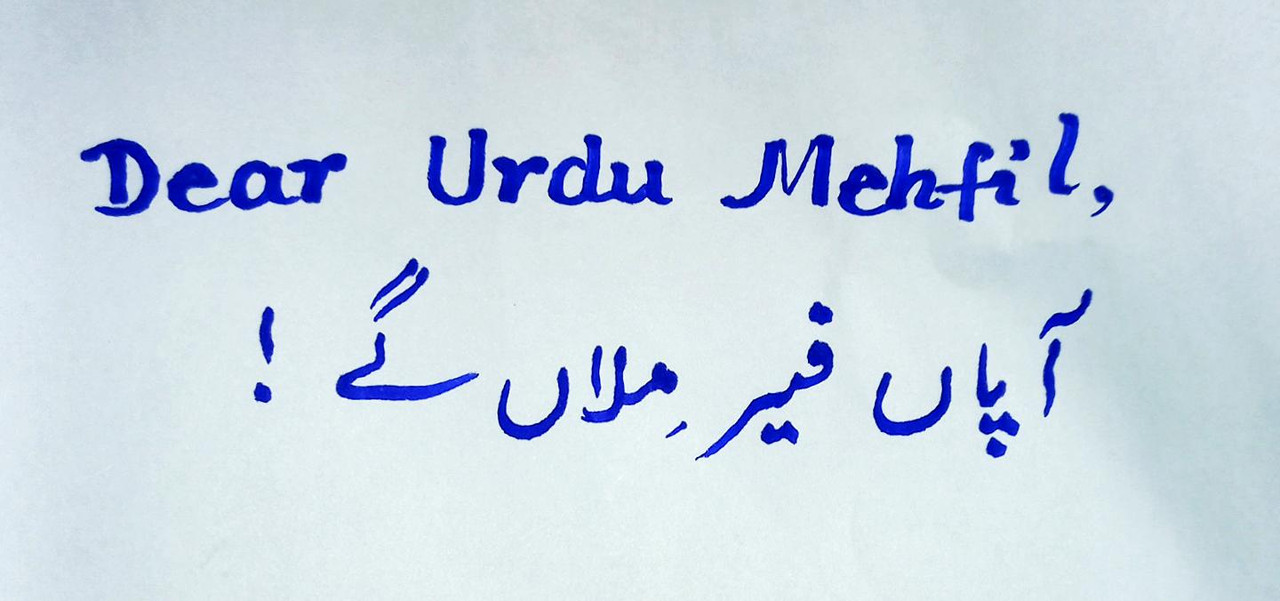 Dear Urdu Mehfil,
آپاں فیر مِلاں گے !